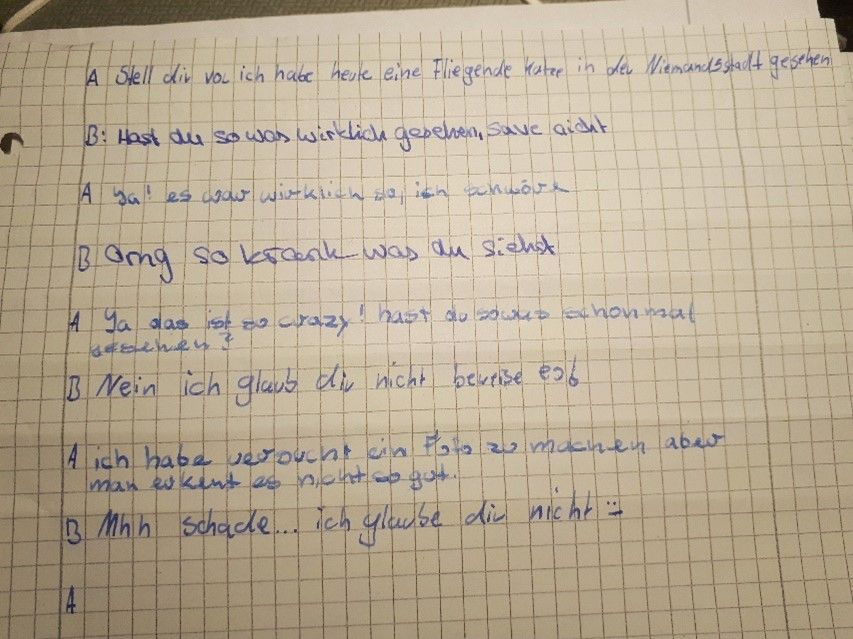 A Stell dir vor ich habe heute eine Fliegende Katze in der Niemandsstadt gesehen
B: Hast du sowas wirklich gesehen, save nicht
A Ya! es war wirklich so, ich schwöre
B Omg so krank was du siehst
A Ya das ist so crazy! hast du sowas schonmal
gesehen?
B Nein ich glaub dir nicht beweise es
A ich habe versucht ein Foto zu machen aber
man erkent es nicht so gut.
B Mhh schade... ich glaube dir nicht :-
A